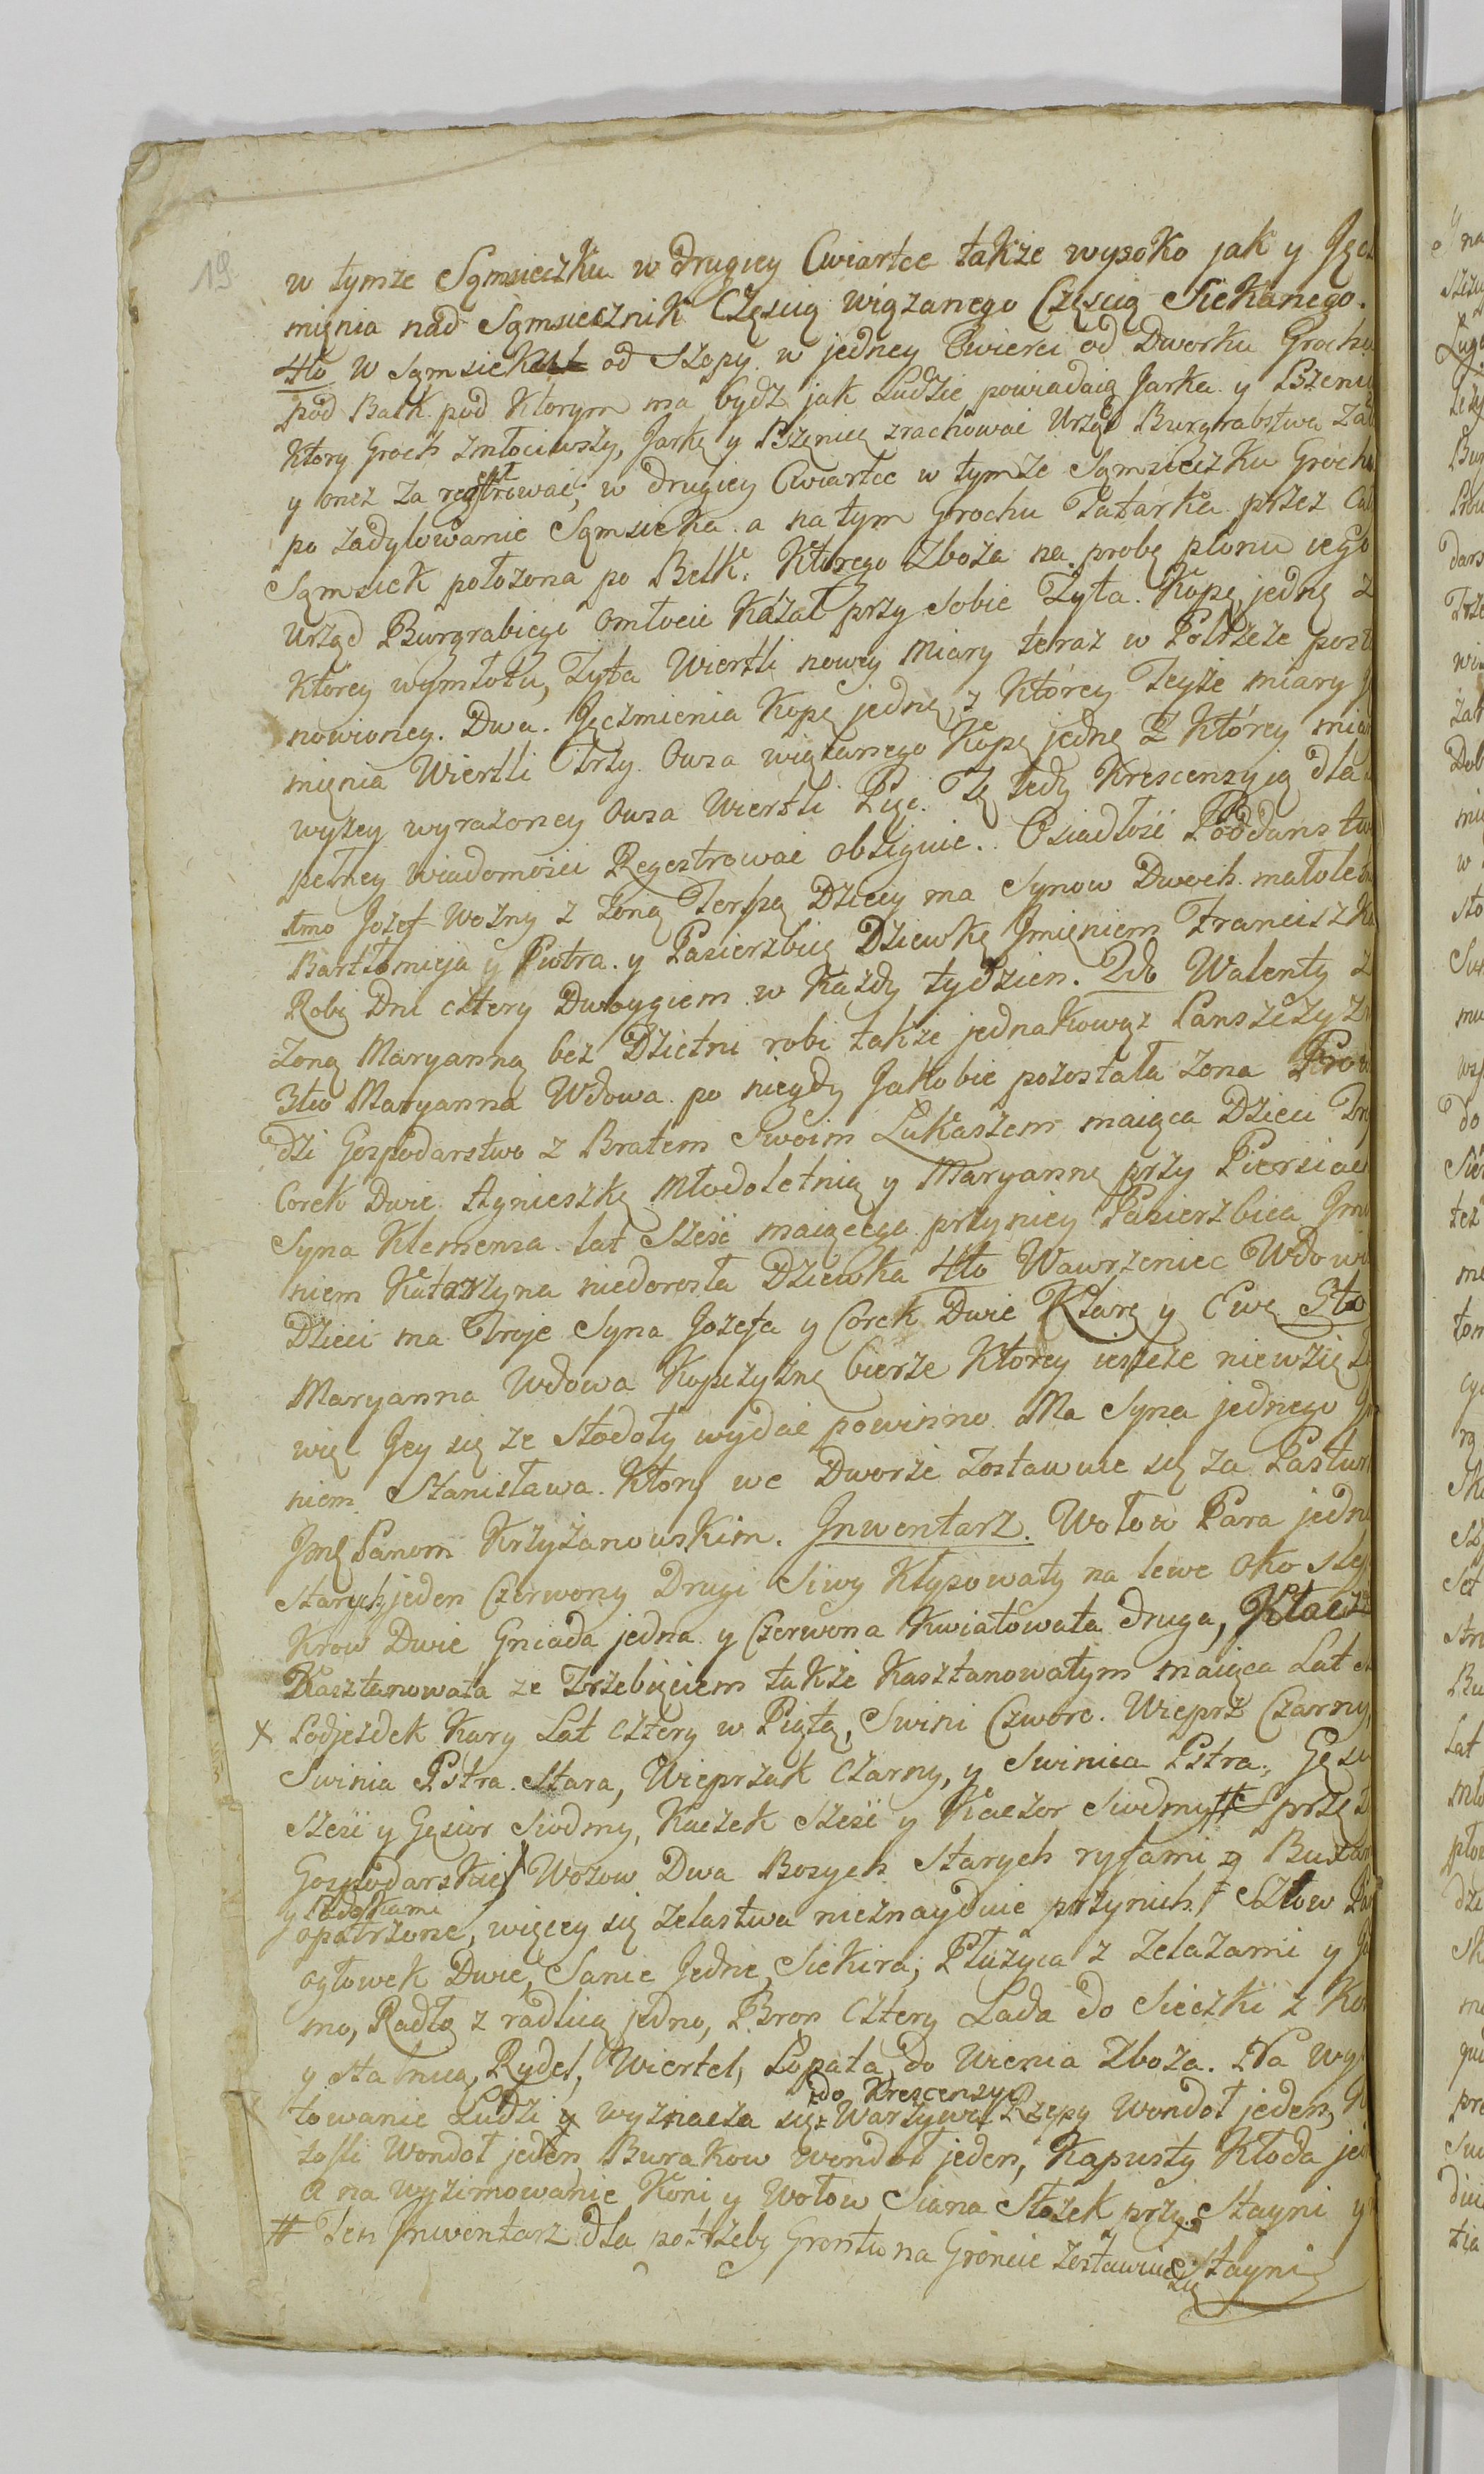 19
w tymże Sąmsieczku w drugiey Cwiartce także wysoko jak y Jęcz
mięnia nad Sąmsiecznik Częscią wiązanego Częscią Siekanego.
4to W Sąmsieku od Szopy w jedney Cwierci od Dworku Grochu
pod Balk pod Ktorym ma bydz jak Ludzie powiadaią Jarka y Pszeni
Ktory Groch zmłociwszy, Jarkę y Pszęnicę zrachować Urząd Burgrabstwa
y onez za regestrować; w drugiey Cwiartce w tymże Sąmsieczku Grochu
po zadylowanie Sąmsieka a na tym Grochu Tatarka przez Cał
Sąmsiek położona po Belk. Ktorego Zboża na probę plonu iego
Urząd Burgrabiego Omłocić Kazał przy sobie Zyta. Kopę jednę z
Ktorey wymłotu, Zyta Wiertli nowey Miary teraz w Potrzeże post
nowioney. Dwa. Jęczmienia Kopę jednę, z Ktorey Teyże miary J
mięnia Wiertli Trzy. Owsa wiązanego Kopę jednę Z Ktorey miar
wyżey wyrażoney Owsa Wiertli Pięć. Tę tedy Krescenzyią dla
pełney wiadomości Regestrować obligiue. Osiadłość Poddanstwa
1mo Jozef Wozny z żoną Terssą Dzieci ma Synow Dwoch małoletn
Bartłomieja y Piotra. y Pasierzbicę Dziewkę Jmięniem Franciszka
Robi Dni cztery Dwoygiem w Każdy tydzien. 2do Walenty z
żoną Maryanną bez Dzietni robi także jednakowąż Panszczyzn
3tio Maryanna Wdowa po niegdy Jakobie pozostała żona Prow
dzi Gospodarstwo z Bratem Swoim Lukaszem maiąca Dzieci Tro
Corek Dwie Agnieszkę Młodoletnią y Maryannę przy Piersiac
Syna Klemensa lat Sześć maiącego przyniey Pasierzbica Jmie
niem Katarzyna niedorosła Dziewka 4to Wawrzeniec Wdowi
Dzieci ma Troje Syna Jozefa y Corek Dwie Klarę y Ewę 5to
Maryanna Wdowa Kopczyznę bierze Ktorey ieszcze niewzię
więc Jey się ze Stodoły wydać powinno. Ma Syna jednego Jm
niem Stanisława. Ktory we Dworze zostawuie się za Pastur
Jmę Panom Krzyżanowskim. Jnwentarz. Wołow Para jedna
starych jeden Czerwony Drugi Siwy Kłypowaty na lewe Oko sle
Krow Dwie Gniada jedna y Czerwona Kwiatowata druga, Klacz
Kasztanowata ze Zrzebięciem także Kasztanowatym maiąca Lat
x Podjezdek Kary Lat cztery w Piątą, Swini Czworo. Wieprz Czarny,
Swinia Pstra Stara, Wieprzak Czarny, y Swinica Pstra, Gęsi
Sześć y Gęsior Siodmy, Kaczek Sześć y Kaczor Siodmy # Sprzę
Gospodarskie Wozow Dwa Bosych Starych ryfami
y Ladoskami
opatrzone, więcey się żelastwa nieznayduie przynich Szłow
ogłowek Dwie, Sanie Jedne, Siekira, Płużyca z Zelazami y
mo, Radło z radlicą jedno, Bron Cztery Lada do Sieczki z Ko
y stalnicą, Rydel, Wiertel, Łopata do wienia Zboża. Na Wyż
do Krescenzyi
towanie Ludzi wyznacza się Warzywa Rzepy Wondoł jeden,
Wondoł jeden, Burakow Wondoł jeden, Kapusty Kłoda je
A na wyzimowanie Koni y Wołow Siana Stożek przy Stayni y
# Ten Jnwentarz dla potrzeby Grontu na Groncie zostawuie się
Stayni